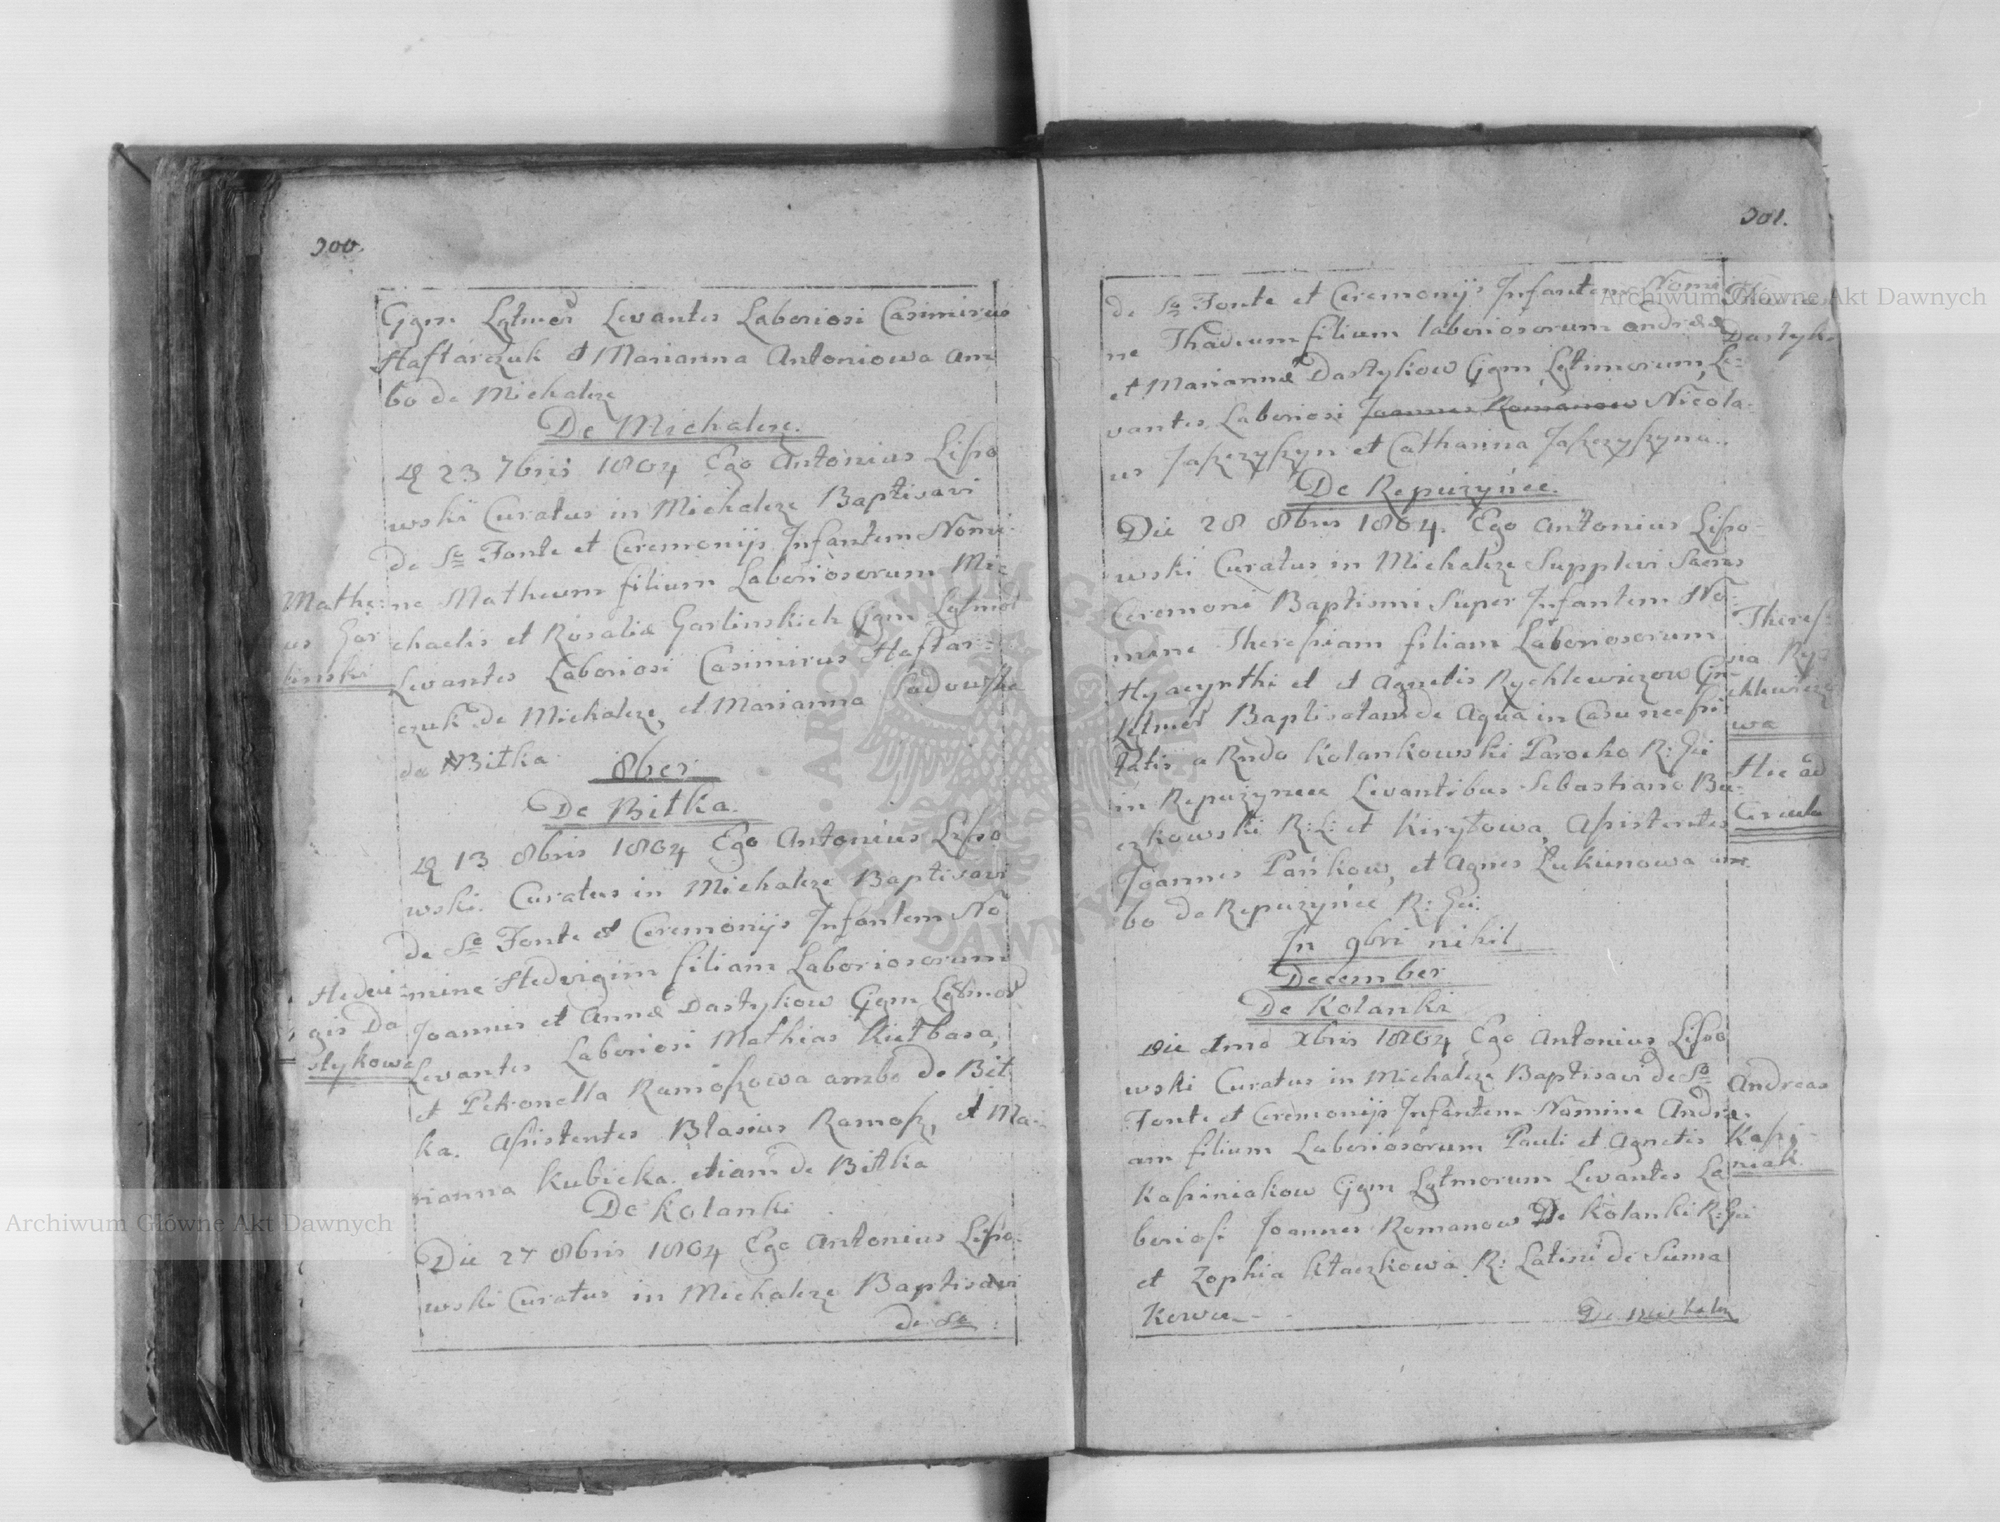 300.
Ggm Lgtmor Levantes Laboriosi Casimirus
Haftarczuk et Marianna Antoniowa am
bo de Michalcze
De Michalcze.
D 23 7bris 1804 Ego Antonius Lipo
wski Curatus in Michalcze Baptisavi
de So Fonte et Ceremonijs Infantem Nomi
ne Matheum filium Laboriosorum Mi
chaelis et Rosaliæ Garlinskich Ggm Lgtmor
Levantes Laboriosi Casimirus Haftar=
czuk de Michalcze, et Marianna Sadowska
de Bitka
Mathe:
us Gar
linski
8ber
De Bitka.
D 13 8bris 1804 Ego Antonius Lipo
wski. Curatus in Michalcze Baptisavi
de So Fonte et Ceremonijs Infantem No
mine Hedvigim filiam Laboriosorum
Joannis et Annæ Dastykow Ggm Lgtmor
Levantes Laboriosi Mathias Kiełbasa,
et Petronella Ramoszowa ambo de Bit
ka. Assistentes Blasius Ramosz, et Ma-
rianna Kubicka etiam de Bitka
Hedvi
gis Da
stykowa
De Kolanki
Die 27 8bris 1804 Ego Antonius Lipo-
wski Curatus in Michalcze Baptisavi
de So:
301.
de So Fonte et Ceremonijs Infantem Nomi
ne Thadeum filium laboriosorum Andreæ
et Mariannæ Dastykow Ggm Lgtmorum, Le-
vantes Laboriosi Joannes Romanow Nicola-
us Jaszczyszyn et Catharina Jaszczyszyna.
Dastyk
De Repużyńce.
Die 28 8bris 1804. Ego Antonius Lipo-
wski Curatus in Michalcze Supplevi Sacras
Ceremoni Baptismi Super Infantem No-
mine Theressiam filiam Laboriosorum
Hyacynthi et et Agnetis Rychlewiczow Gg
Lgtmor Baptisatam de Aqua in Casu necessi
tatis a Rndo Kolankowski Parocho R: Gci
in Repużyncee Levantibus Sebastiano Bu-
czkowski R: L: et Kiryłowa, Assistentes
Joannes Pańkow, et Agnes Łukiinowa am
bo de Repużyńce R: Gci.
Theres-
sia Ry
chlewiczo
wa
Hic ad
Tercula
In 9bri nihil
December
De Kolanki
Die 1mo Xbris 1804 Ego Antonius Lipo
wski Curatus in Michalcze Baptisavi de So
Fonte et Ceremonijs Infantem Nomine Andre-
am filium Laboriosorum Pauli et Agnetis
Kasiniakow Ggm Lgtmorum Levantes La
boriosi Joannes Romanow De Kolanki R: Gci
et Zophia Kłaczkowa R: Latini de Siema
kowce
Andreas
Kasi-
niak
De Michalcz
Archiwum Główne Akt Dawnych
Archiwum Główne Akt Dawnych
ARCHIWUM GŁÓWNE AKT DAWNYCH